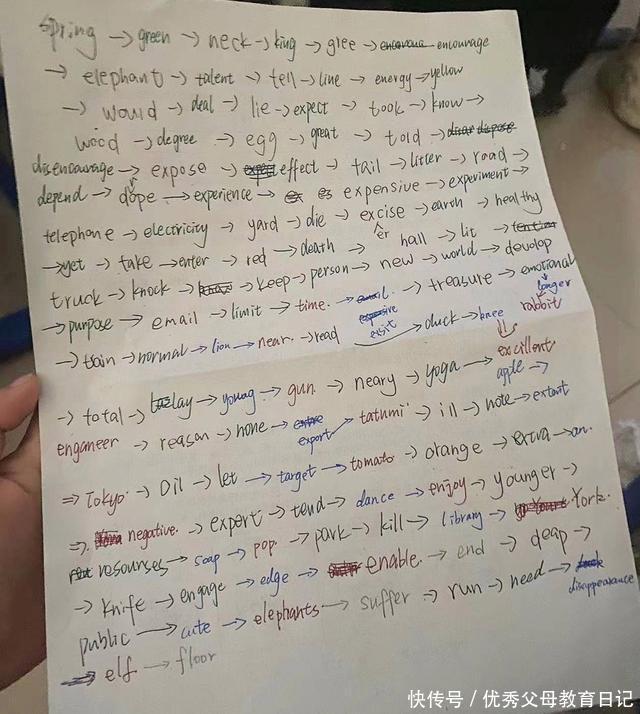 spring → green → neck → king → gree → encourage
→ elephant → talent → tell → line → energy → yellow
→ would → deal → lie → expect → took → know →
wood → degree → egg → great → told → dispose
disencourage → expose → effect → tail → litter → road →
depend → dope → experience → expensive → experiment →
telephone → electricity → yard → die → excise → earth → healthy
er
→ yet → take → enter → red → death → hall → lit →
truck → knock → keep → person → new → world → develop
→ purpose → email → limit → time. → treasure → emotional
→ tain → normal → lion → near. → read → duck → knee
exsit
longer
rabbit
excillent
apple →
→ total → lay → young → gun → neary → yoga →
enganeer → reason → none → export → tatumi → ill → note → extant
⇒ Tokyo. → oil → let → target → tomato → orange → extra → an.
⇒ negative. → export → tend → dance → enjoy → younger →
resourses → soap → pop. → park → kill → library → York.
→ knife → engage → edge → enable. → end → deap →
public → cute → elephants → suffer → run → need → disappearance
→ elf → floor
快传号／优秀父母教育日记